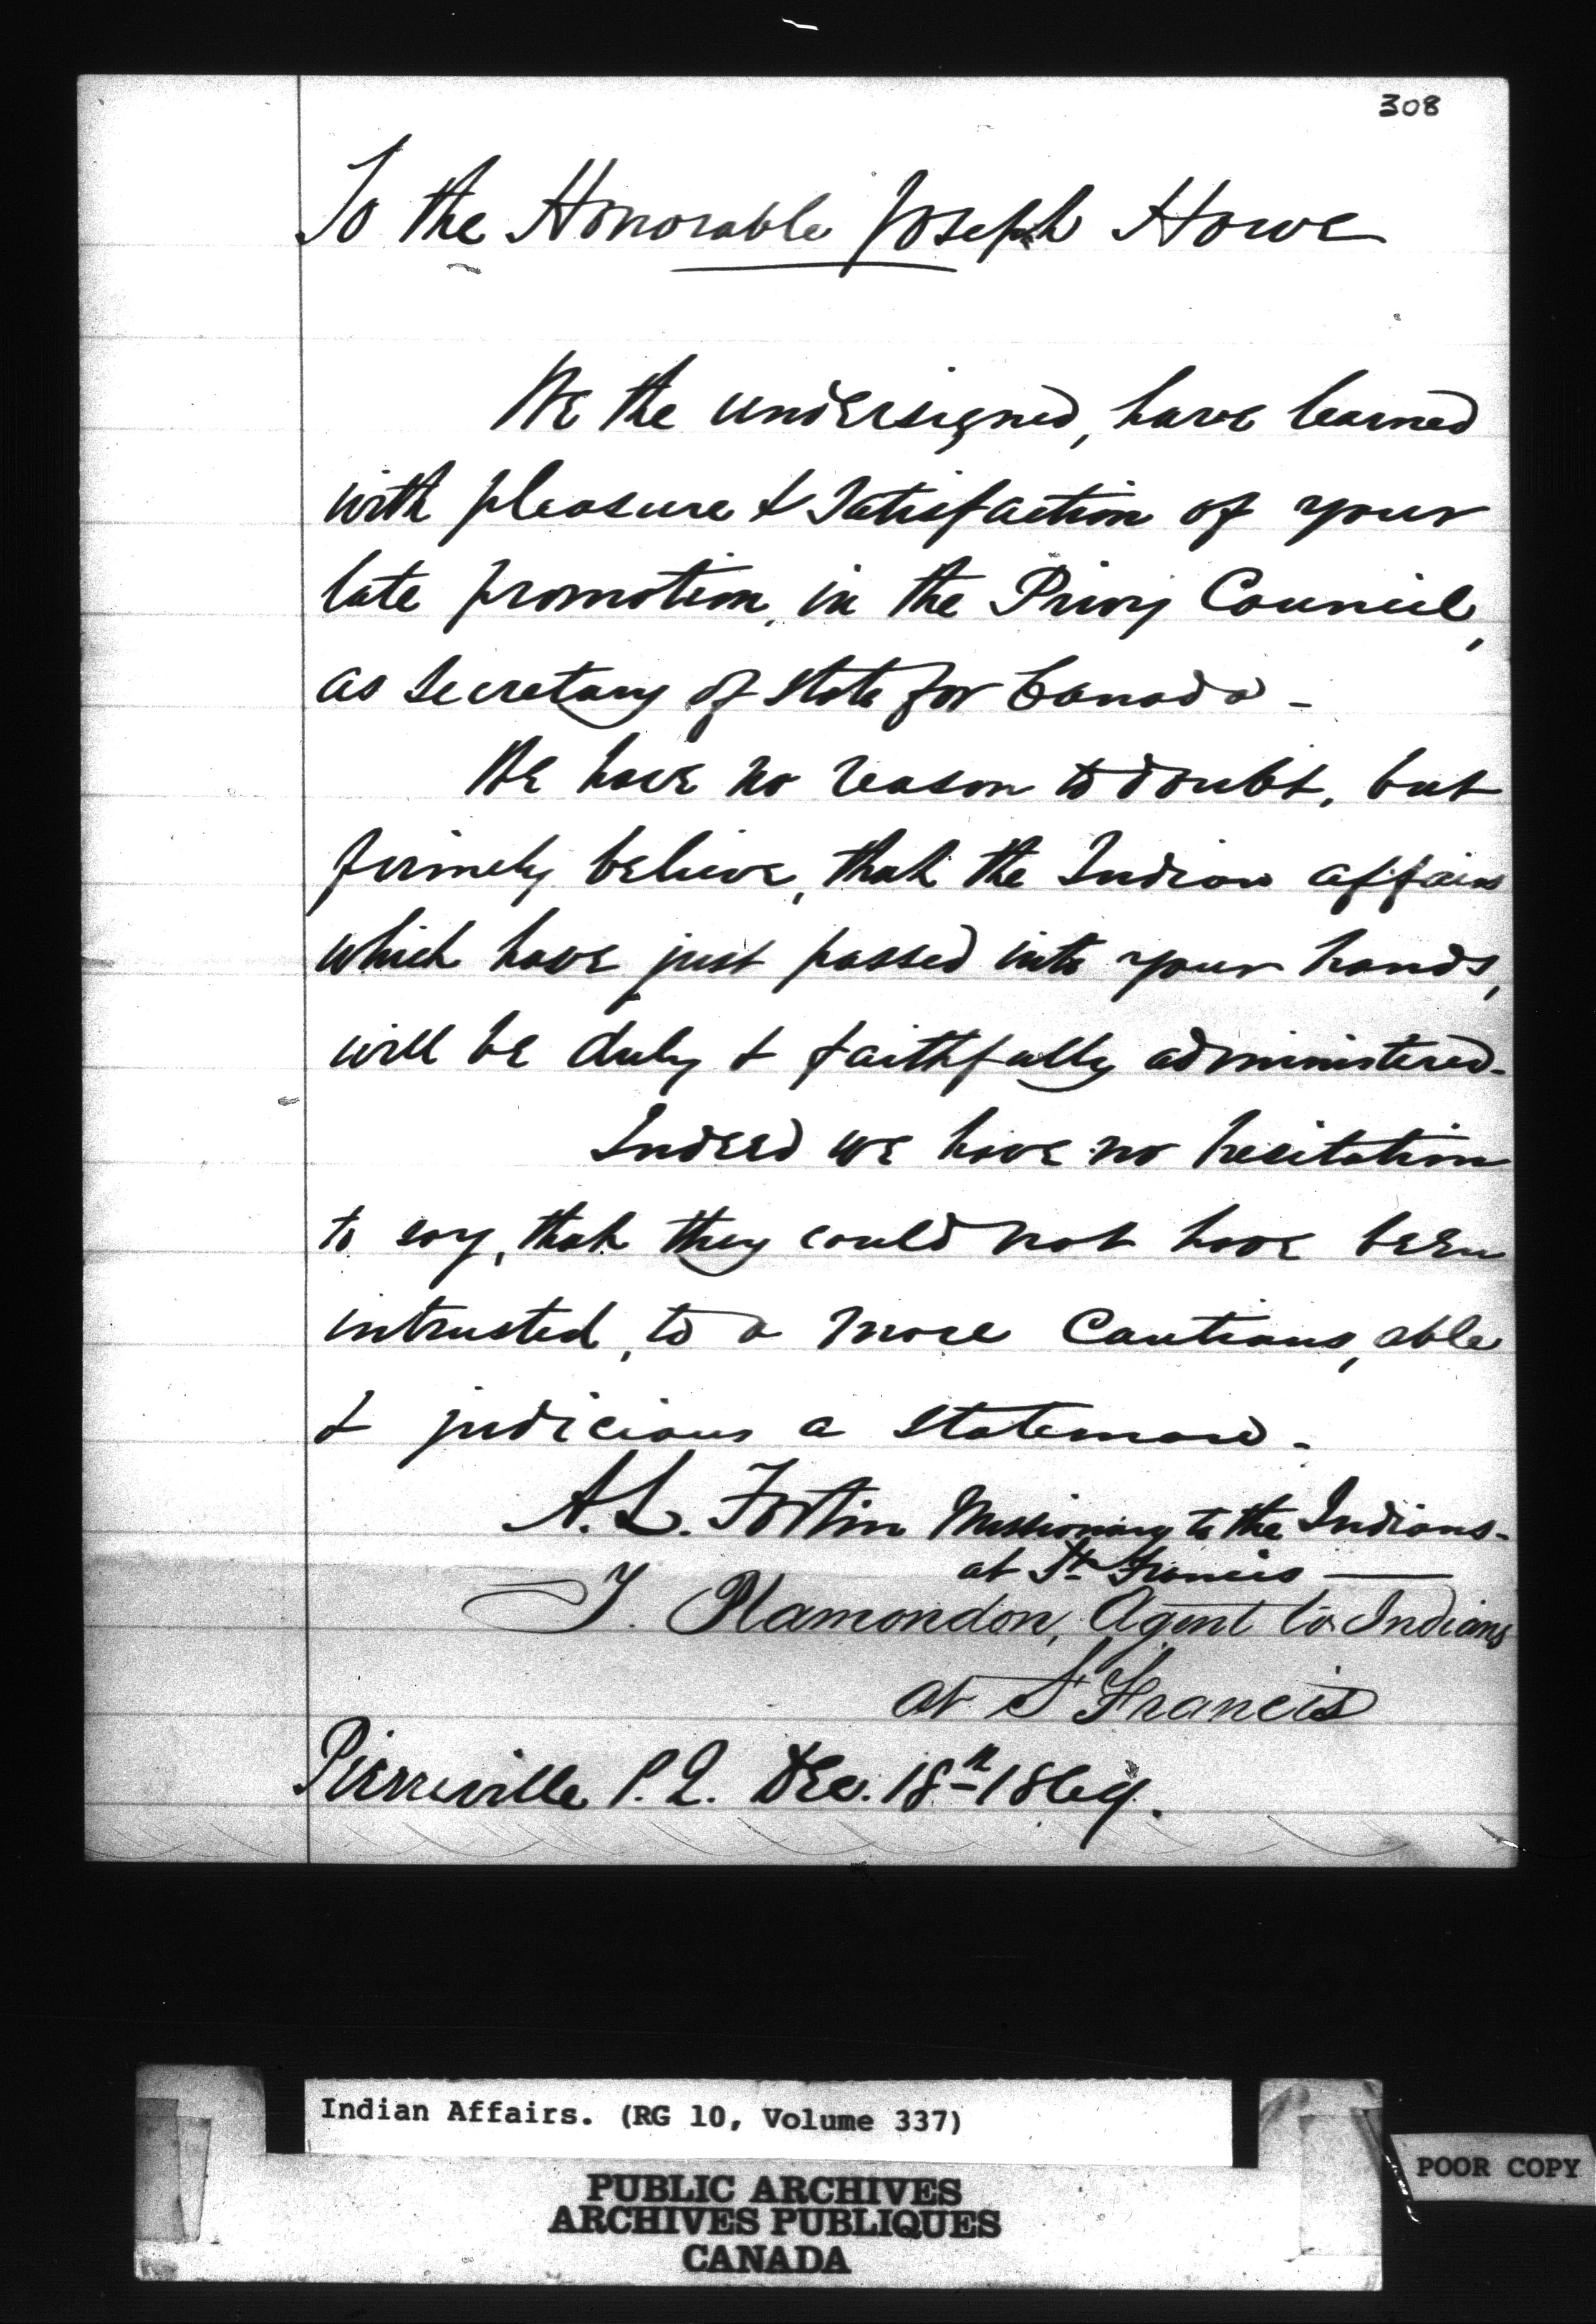 308
To the Honorable Joseph Howe
We the undersigned, have learned
with pleasure & satisfaction of your
late promotion, in the Privy Council,
as Secretary of State for Canada -
We have no reason to doubt, but
firmely believe, that the Indian affairs
which have just passed into your hands,
will be duly & faithfully administered.
Indeed we have no hesitation
to say, that they could not have been
intrusted, to a more Cautious, able
& judicious a statemand.
A. L. Fortin Missionary to the Indians.
at St. Francis —
J. Plamondon, Agent to Indians
at St Francis
Pierreville P. Q. Dec. 18th 1869.
Indian Affairs. (RG 10, Volume 337)
POOR COPY
PUBLIC ARCHIVES
ARCHIVES PUBLIQUES
CANADA